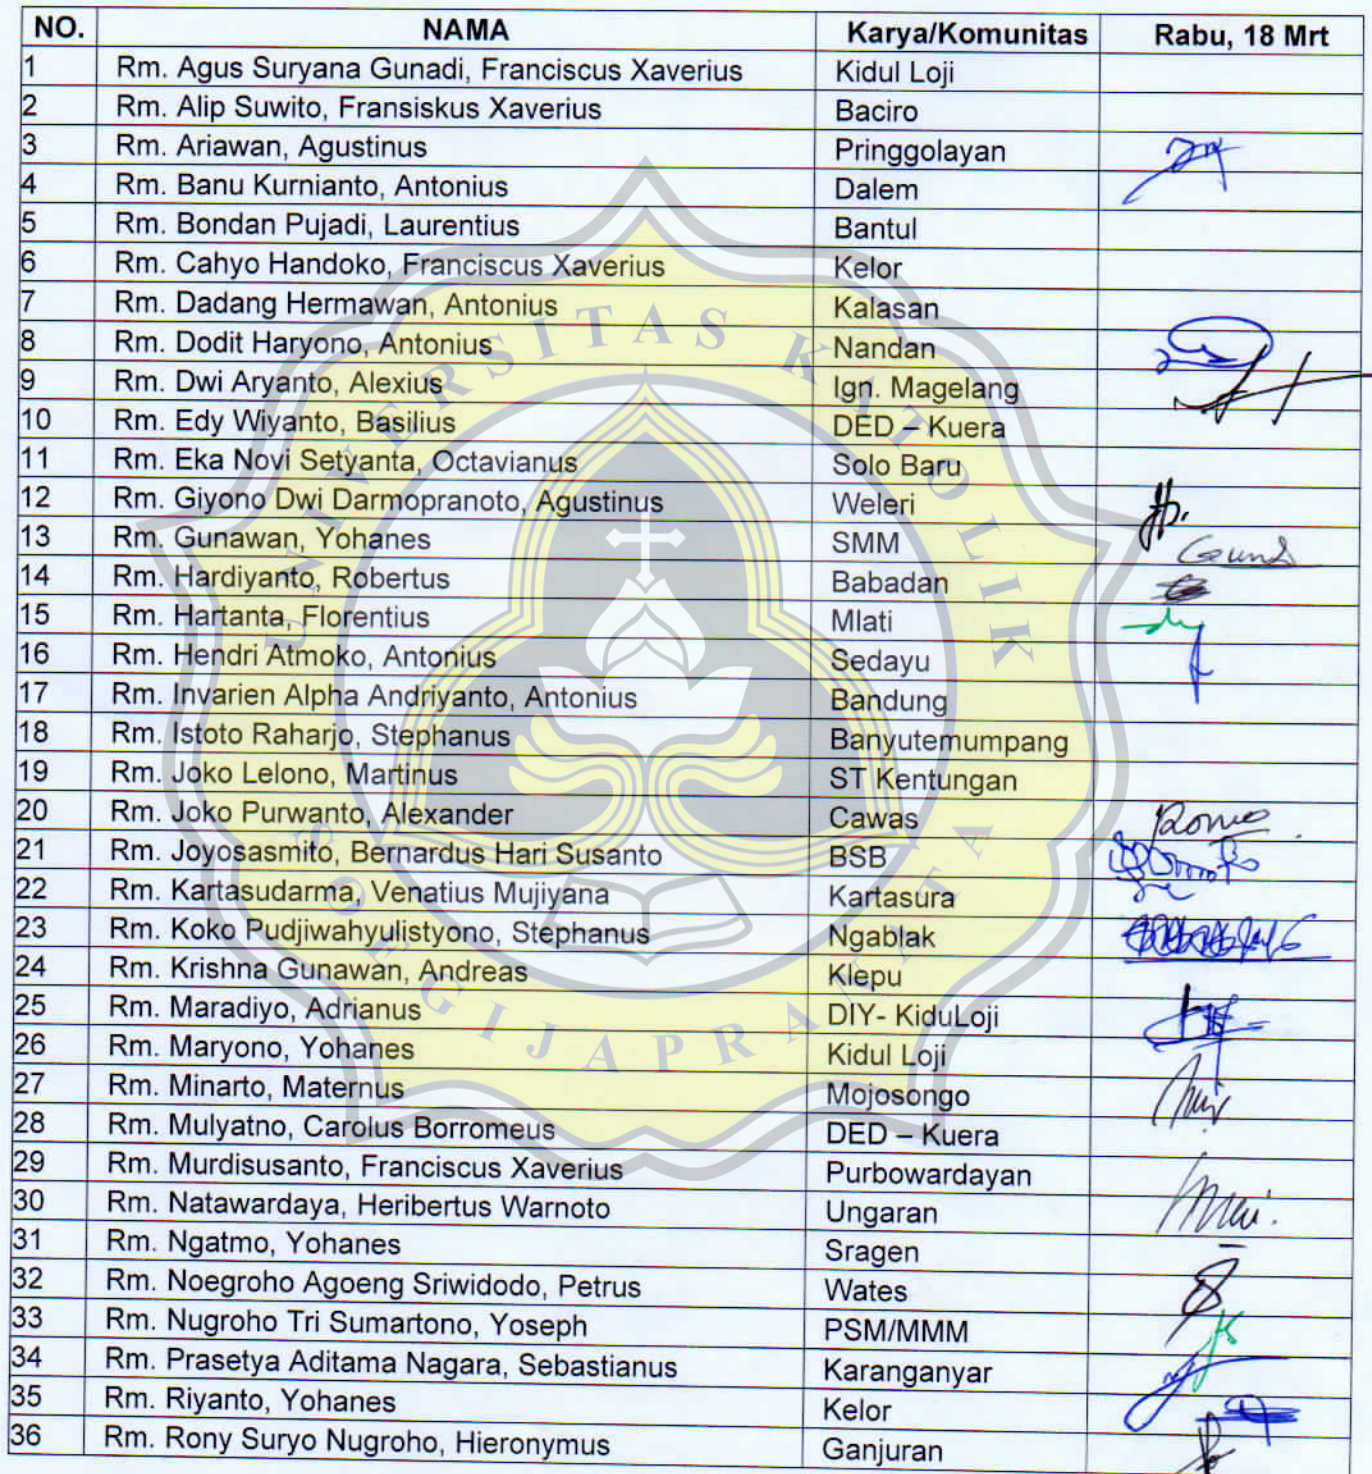 NO. NAMA Karya/Komunitas Rabu, 18 Mrt
1 Rm. Agus Suryana Gunadi, Franciscus Xaverius Kidul Loji
2 Rm. Alip Suwito, Fransiskus Xaverius Baciro
3 Rm. Ariawan, Agustinus Pringgolayan
4 Rm. Banu Kurnianto, Antonius Dalem
5 Rm. Bondan Pujadi, Laurentius Bantul
6 Rm. Cahyo Handoko, Franciscus Xaverius Kelor
7 Rm. Dadang Hermawan, Antonius Kalasan
8 Rm. Dodit Haryono, Antonius Nandan
9 Rm. Dwi Aryanto, Alexius Ign. Magelang
10 Rm. Edy Wiyanto, Basilius DED – Kuera
11 Rm. Eka Novi Setyanta, Octavianus Solo Baru
12 Rm. Giyono Dwi Darmopranoto, Agustinus Weleri
13 Rm. Gunawan, Yohanes SMM
14 Rm. Hardiyanto, Robertus Babadan
15 Rm. Hartanta, Florentius Mlati
16 Rm. Hendri Atmoko, Antonius Sedayu
17 Rm. Invarien Alpha Andriyanto, Antonius Bandung
18 Rm. Istoto Raharjo, Stephanus Banyutemumpang
19 Rm. Joko Lelono, Martinus ST Kentungan
20 Rm. Joko Purwanto, Alexander Cawas
21 Rm. Joyosasmito, Bernardus Hari Susanto BSB
22 Rm. Kartasudarma, Venatius Mujiyana Kartasura
23 Rm. Koko Pudjiwahyulistyono, Stephanus Ngablak
24 Rm. Krishna Gunawan, Andreas Klepu
25 Rm. Maradiyo, Adrianus DIY- KiduLoji
26 Rm. Maryono, Yohanes Kidul Loji
27 Rm. Minarto, Maternus Mojosongo
28 Rm. Mulyatno, Carolus Borromeus DED – Kuera
29 Rm. Murdisusanto, Franciscus Xaverius Purbowardayan
30 Rm. Natawardaya, Heribertus Warnoto Ungaran
31 Rm. Ngatmo, Yohanes Sragen
32 Rm. Noegroho Agoeng Sriwidodo, Petrus Wates
33 Rm. Nugroho Tri Sumartono, Yoseph PSM/MMM
34 Rm. Prasetya Aditama Nagara, Sebastianus Karanganyar
35 Rm. Riyanto, Yohanes Kelor
36 Rm. Rony Suryo Nugroho, Hieronymus Ganjuran
UNIVERSITAS KATOLIK
SOEGIJAPRANATA